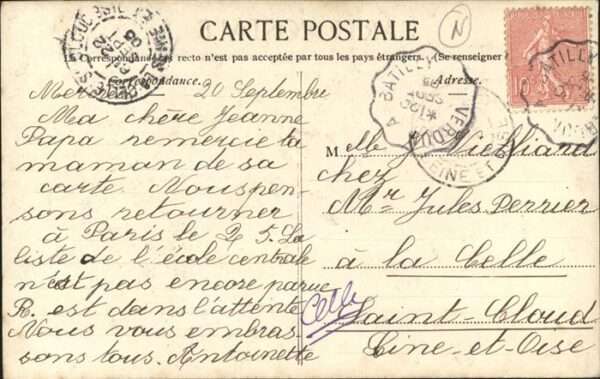 CARTE POSTALE
La Correspondance au recto n'est pas acceptée par tous les pays étrangers. (Se renseigner
Correspondance.
Adresse.
20 Septembre
Ma chère Jeanne
Papa remercie ta
maman de sa
carte. Nous pen-
sons retourner
à Paris le 25. La
liste de l'école centrale
n'est pas encore parue
R. est dans l'attente
Nous vous embras
sons tous. Antoinette
Melle J. Vielliard
chez
Mr Jules Perrier
à la Celle
Celle
Saint-Cloud
Sine-et-Oise
N
10
BATILLY A VERDUN
BATILLY